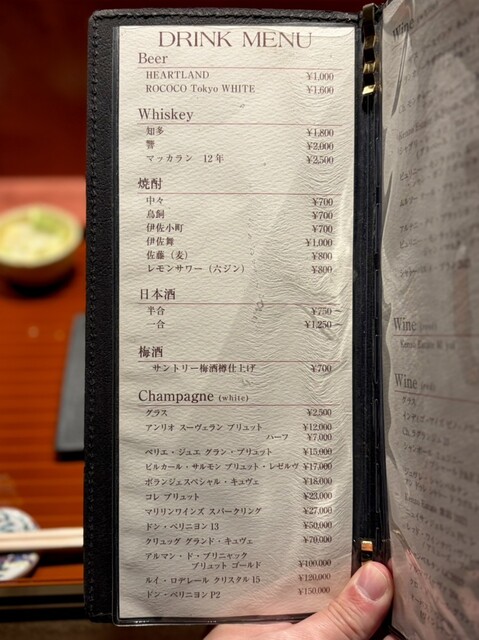 DRINK MENU
Beer
HEARTLAND ¥1,000
ROCOCO Tokyo WHITE ¥1,600
Whiskey
知多 ¥1,800
響 ¥2,000
マッカラン 12年 ¥2,500
焼酎
中々 ¥700
鳥飼 ¥700
伊佐小町 ¥700
伊佐舞 ¥1,000
佐藤（麦） ¥800
レモンサワー（六ジン） ¥800
日本酒
半合 ¥750～
一合 ¥1,250～
梅酒
サントリー梅酒樽仕上げ ¥700
Champagne (white)
グラス ¥2,500
アンリオ スーヴェラン ブリュット ¥12,000
ハーフ ¥7,000
ペリエ・ジュエ グラン・ブリュット ¥15,000
ビルカール・サルモン ブリュット・レゼルヴ ¥17,000
ボランジェスペシャル・キュヴェ ¥18,000
コレ ブリュット ¥23,000
マリリンワインズ スパークリング ¥27,000
ドン・ペリニヨン 13 ¥50,000
クリュッグ グランド・キュヴェ ¥70,000
アルマン・ド・ブリニャック
ブリュット ゴールド ¥100,000
ルイ・ロデレール クリスタル 15 ¥120,000
ドン・ペリニヨン P2 ¥150,000
Wine
Wine
Wine
グラス